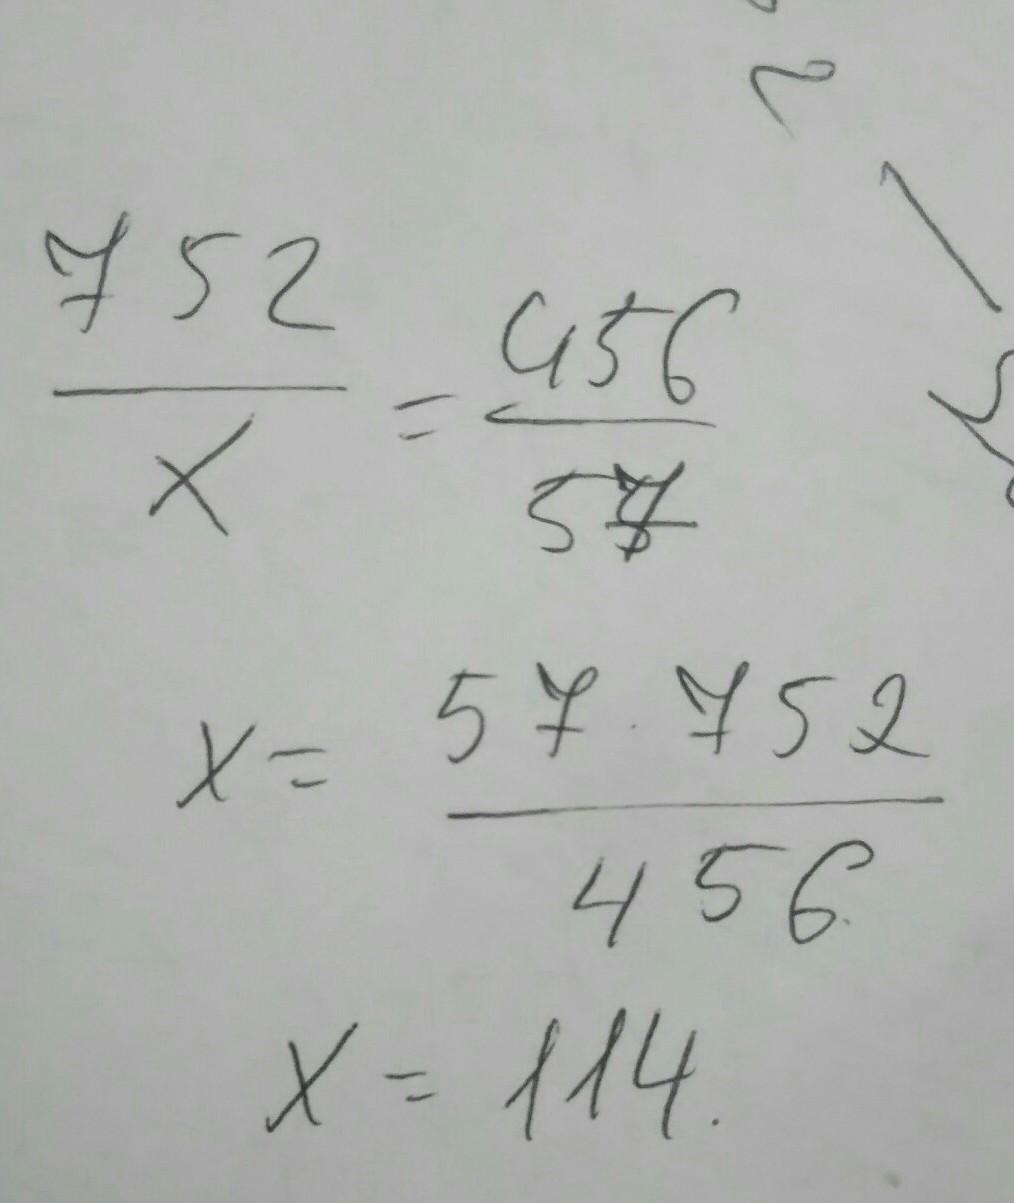 752 / x = 456 / 57
x = 57 · 752 / 456
x = 114.